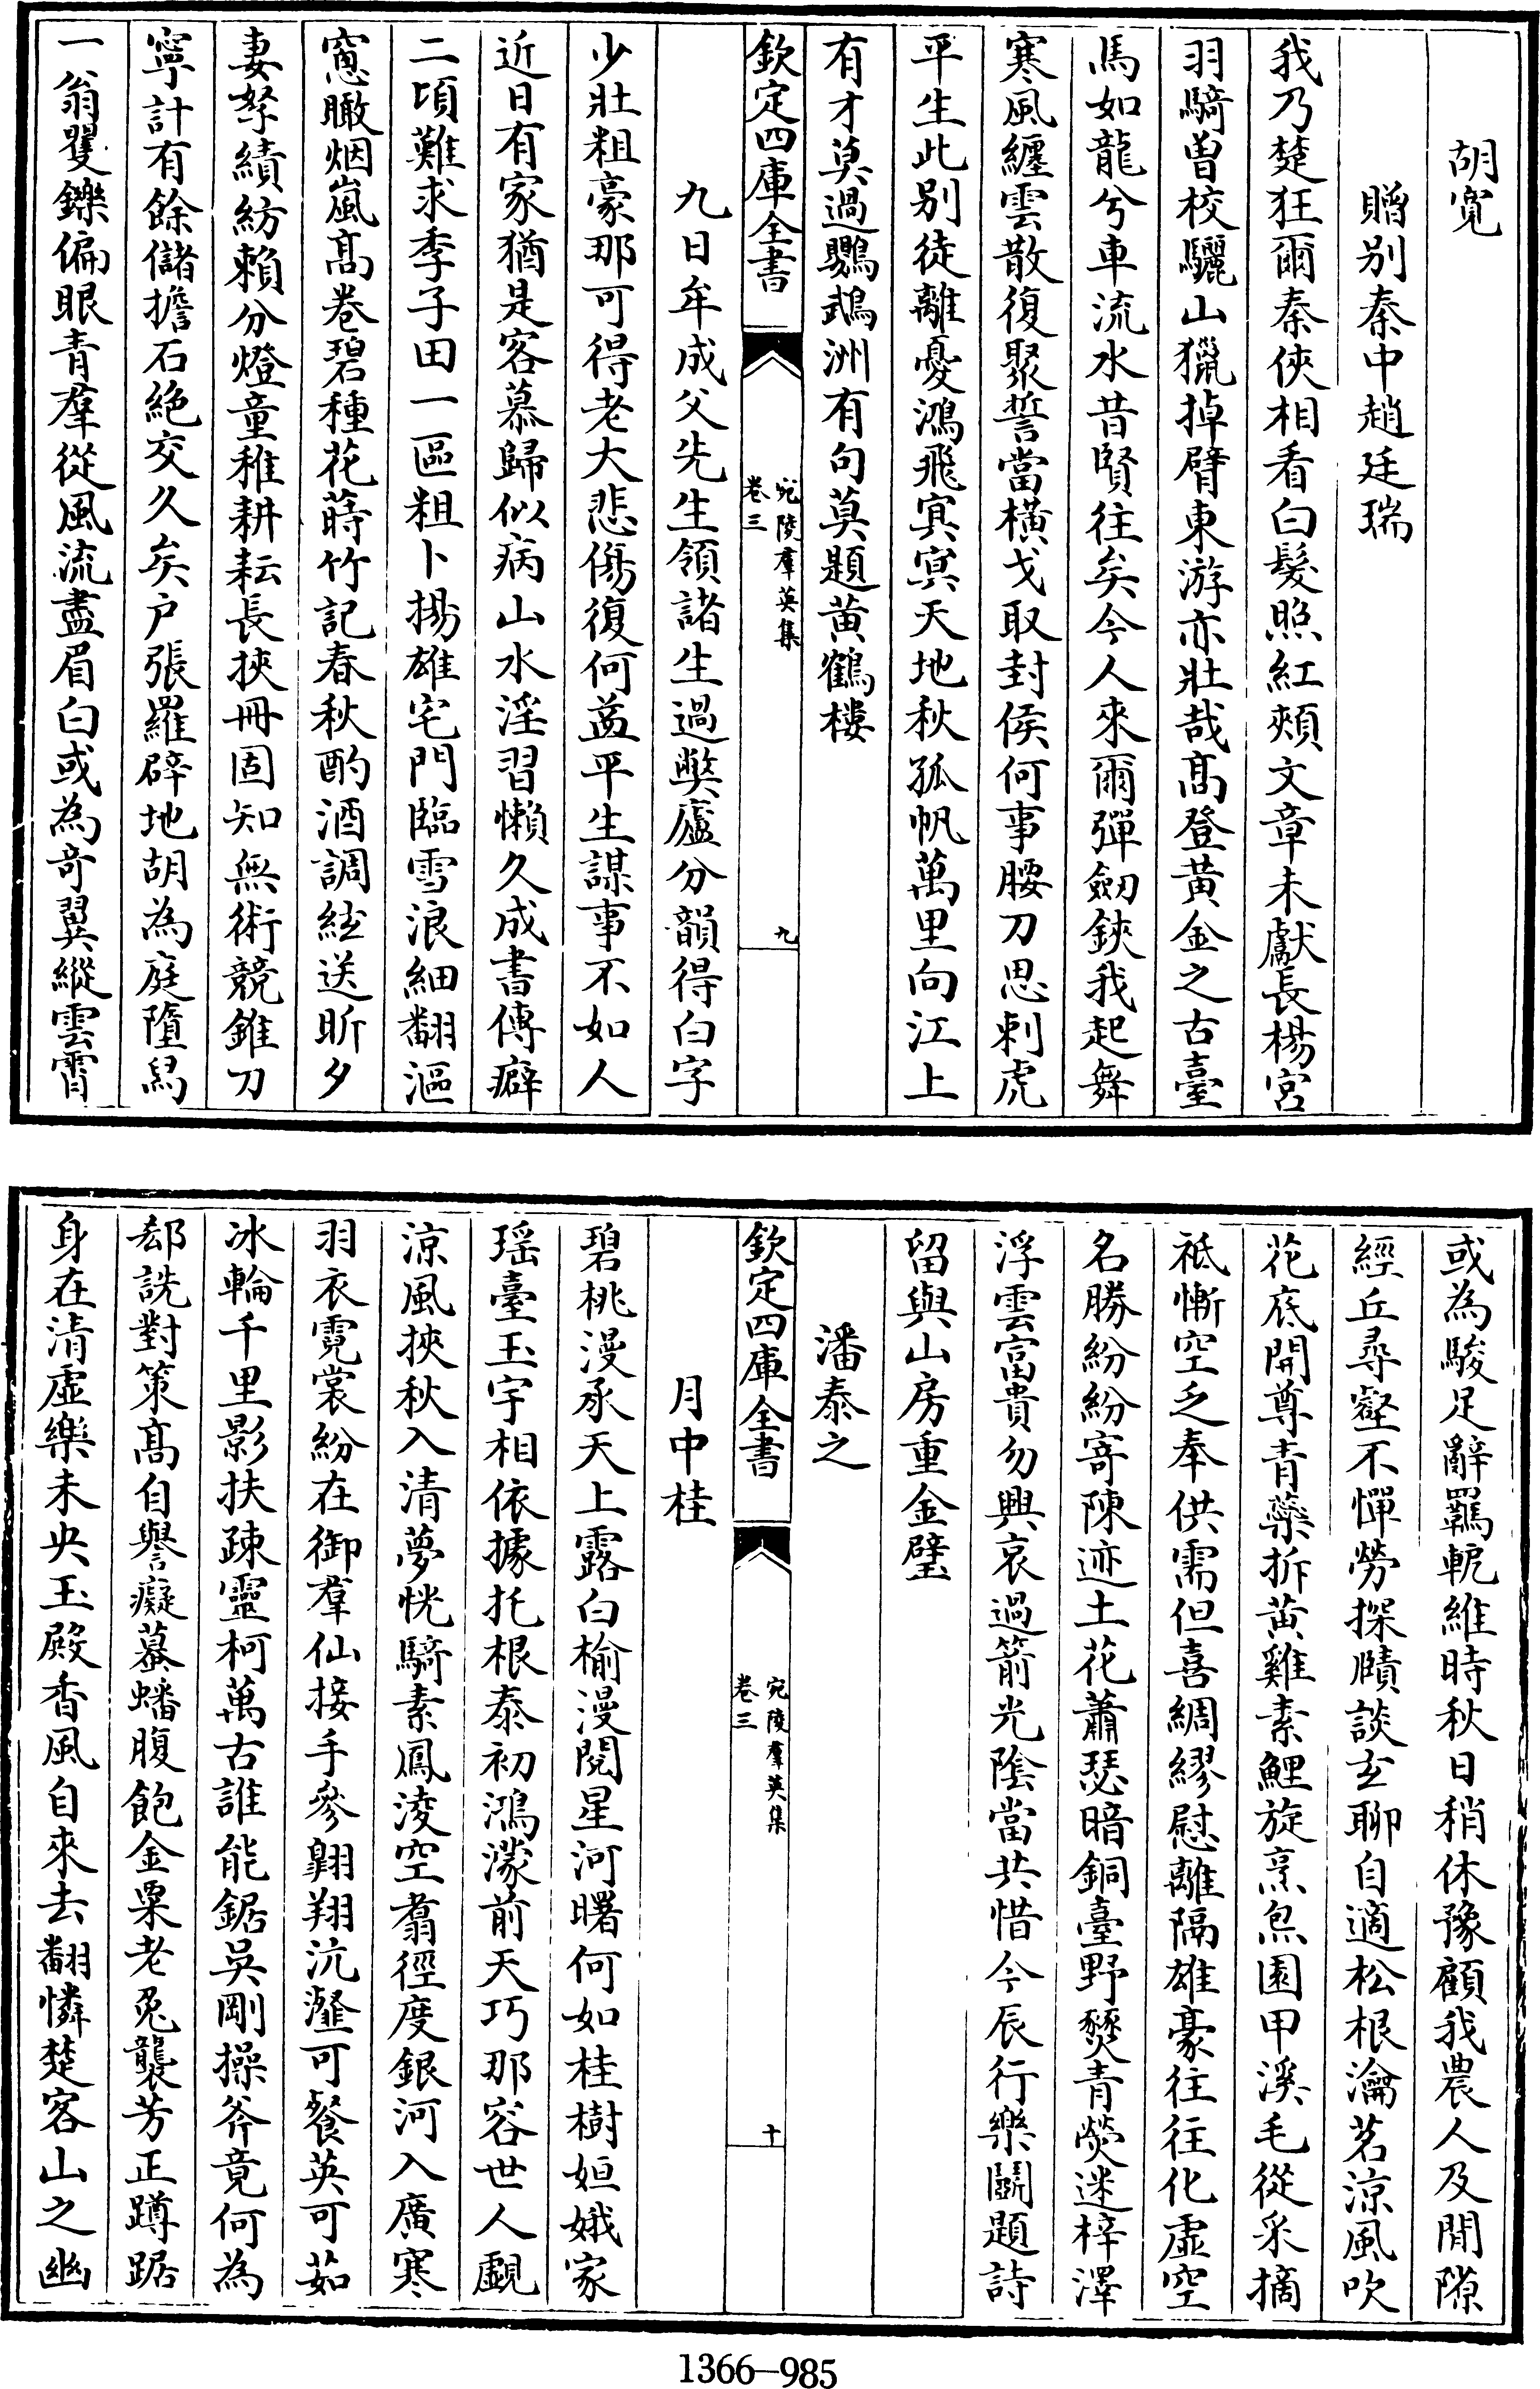 胡寛
贈别秦中趙廷瑞
我乃楚狂爾秦俠相看白髪照紅頰文章未獻長楊宫
羽騎曽校驪山獵掉臂東游亦壯哉髙登黄金之古臺
馬如龍兮車流水昔賢往矣今人來爾彈劔鋏我起舞
寒風纏雲散復聚誓當橫戈取封侯何事腰刀思刺虎
平生此别徒離憂鴻飛冥冥天地秋孤帆萬里向江上
有才莫過鸚鵡洲有句莫題黄鶴樓
欽定四庫全書
宛陵羣英集
卷三
九
九日牟成父先生領諸生過弊廬分韻得白字
少壯粗豪那可得老大悲傷復何益平生謀事不如人
近日有家猶是客慕歸似病山水淫習懶久成書傳癖
二頃難求季子田一區粗卜揚雄宅門臨雪浪細翻漚
窻瞰烟嵐髙卷碧種花蒔竹記春秋酌酒調絃送昕夕
妻孥績紡賴分燈童稚耕耘長挾冊固知無術競錐刀
寧計有餘儲擔石絶交久矣户張羅辟地胡為庭墮舄
一翁矍鑠偏眼青羣從風流盡眉白或為奇翼縱雲霄
或為駿足辭羈軛維時秋日稍休豫顧我農人及閒隙
經丘尋壑不憚勞探賾談玄聊自適松根瀹茗涼風吹
花底開尊青蘂拆黄雞素鯉旋烹炰園甲溪毛從采摘
祗慚空乏奉供需但喜綢繆慰離隔雄豪往往化虚空
名勝紛紛寄陳迹土花蕭瑟暗銅臺野燹青熒迷梓澤
浮雲富貴勿興哀過箭光陰當共惜今辰行樂鬬題詩
留與山房重金璧
潘泰之
欽定四庫全書
宛陵羣英集
卷三
十
月中桂
碧桃漫承天上露白榆漫閱星河曙何如桂樹姮娥家
瑶臺玉宇相依據托根泰初鴻濛前天巧那容世人覰
涼風挾秋入清夢恍騎素鳳淩空翥徑度銀河入廣寒
羽衣霓裳紛在御羣仙接手參翺翔沆瀣可餐英可茹
冰輪千里影扶疎靈柯萬古誰能鋸吳剛操斧竟何為
郄詵對策髙自譽癡蟇蟠腹飽金粟老兎襲芳正蹲踞
身在清虚樂未央玉殿香風自來去翻憐楚客山之幽
1366-985